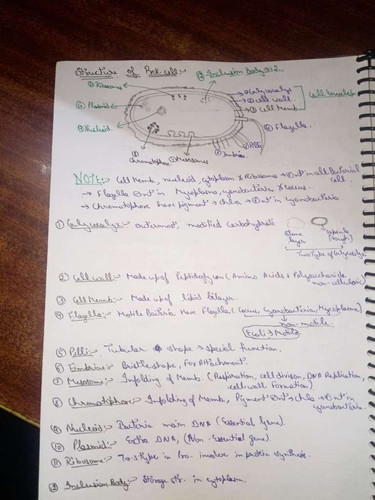 Structure of Prok. cell:-
⑪ Ribosome
⑫ Inclusion Body
⑩ Plasmid
⑨ Nucleoid
① Glycocalyx
② Cell wall
③ Cell Memb.
Cell Envelope
④ Flagella
⑤ Pilli
⑥ Fimbriae
⑦ Mesosomes
⑧ Chromatophore
NOTE:- Cell Memb, nucleoid, cytoplasm & Ribosome → in all Bacterial cell.
→ Flagella in Mycoplasma, cyanobacteria & coccus.
→ Chromatophore have pigment → chla → in cyanobacteria
① Glycocalyx:- outermost, modified carbohydrate
Slime layer
Capsule (tough)
Two Type of Glycocalyx
② Cell wall:- Made up of Peptidoglycan (Amino Acids + Polysaccharide non-cellulosic)
③ Cell Memb:- Made up of Lipid bilayer.
④ Flagella:- Motile Bacteria Have Flagella (Coccus, Cyanobacteria, Mycoplasma)
↳ non-motile
E.coli → Motile
⑤ Pilli:- Tubular shape → special function.
⑥ Fimbriae:- Bristle shape, For Attachment.
⑦ Mesosome:- Infolding of Memb (Respiration, cell division, DNA Replication, cell wall Formation)
⑧ Chromatophore:- Infolding of Memb, Pigment chla → in cyanobacteria.
⑨ Nucleoid:- Bacteria main DNA (Essential Gene).
⑩ Plasmid:- Extra DNA, (Non-Essential gene).
⑪ Ribosome:- 70s type in involve in protein synthesis.
⑫ Inclusion Body:- Storage str. in cytoplasm.